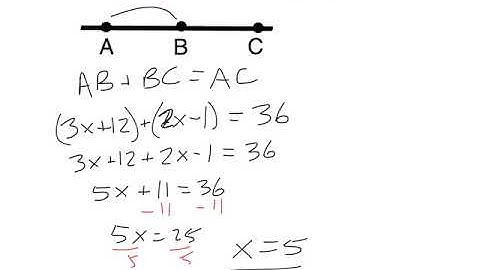 A B C
AB + BC = AC
(3x+12)+(2x-1) = 36
3x+12+2x-1 = 36
5x + 11 = 36
-11 -11
5x = 25 x = 5
5 5